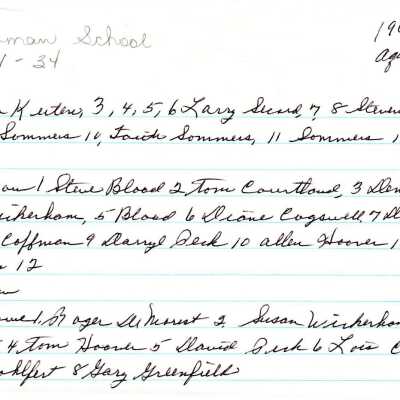 man School
19
1 - 34
Age
Keiten, 3, 4, 5, 6 Larry Secord, 7, 8 Steven
Sommers 10, Faith Sommers, 11 Sommers 1
row 1 Steve Blood 2 Tom Courtland, 3 Den
Wickerham, 5 Blood 6 Diane Cogswell, 7 D
Coffman 9 Darryl Peck 10 Allen Hoover 1
12
row 1, Roger DeMorest 2 Susan Wickerham
4 Tom Hoover 5 David Peck 6 Lois C
ohlfert 8 Gary Greenfield